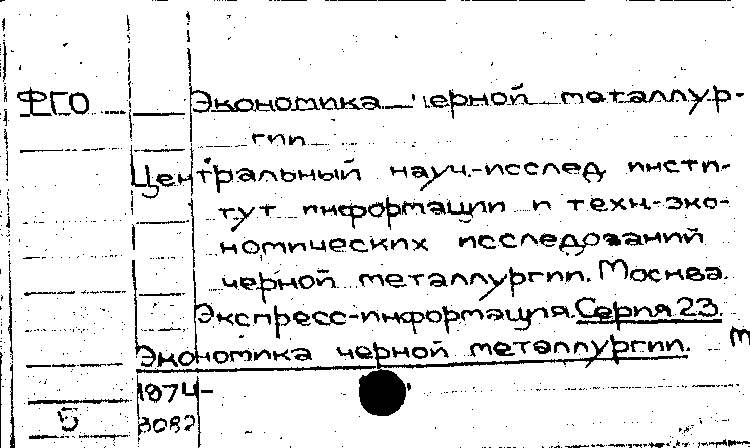 ФГО Экономика черной металлур-
гии
Центральный науч.-исслед. инсти-
тут информации и техн.-эко-
номических исследований
черной металлургии. Москва.
Экспресс-информация. Серия 23.
Экономика черной металлургии. М
1974-
5 3082